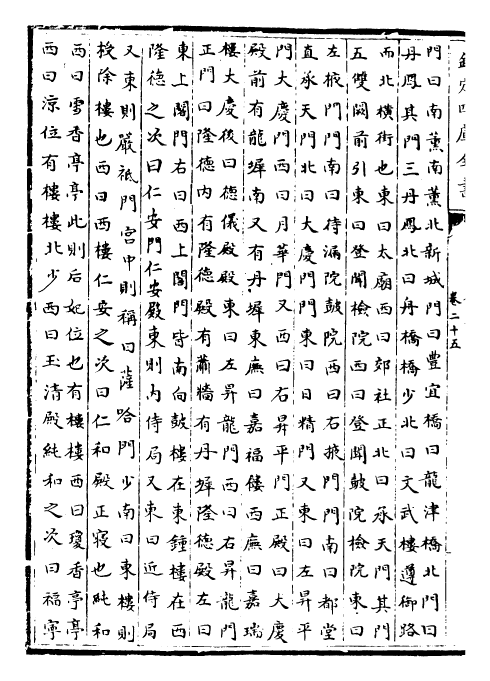 欽定四庫全書
卷二十五
門曰南薰南薰北新城門曰豐宜橋曰龍津橋北門曰
丹鳳其門三丹鳳北曰舟橋橋少北曰文武樓遵御路
而北橫街也東曰太廟西曰郊社正北曰承天門其門
五雙闕前引東曰登聞檢院西曰登聞鼓院檢院東曰
左掖門門南曰待漏院鼓院西曰右掖門門南曰都堂
直承天門北曰大慶門門東曰日精門又東曰左昇平
門大慶門西曰月華門又西曰右昇平門正殿曰大慶
殿前有龍墀南又有丹墀東廡曰嘉福樓西廡曰嘉瑞
樓大慶後曰德儀殿殿東曰左昇龍門西曰右昇龍門
正門曰隆德內有隆德殿有蕭牆有丹墀隆德殿左曰
東上閤門右曰西上閤門皆南向鼓樓在東鐘樓在西
隆德之次曰仁安門仁安殿東則內侍局又東曰近侍局
又東則嚴祗門宮中則稱曰薩哈門少南曰東樓則
授除樓也西曰西樓仁安之次曰仁和殿正寢也純和
西曰雪香亭亭此則后妃位也有樓樓西曰瓊香亭亭
西曰涼位有樓樓北少西曰玉清殿純和之次曰福寧